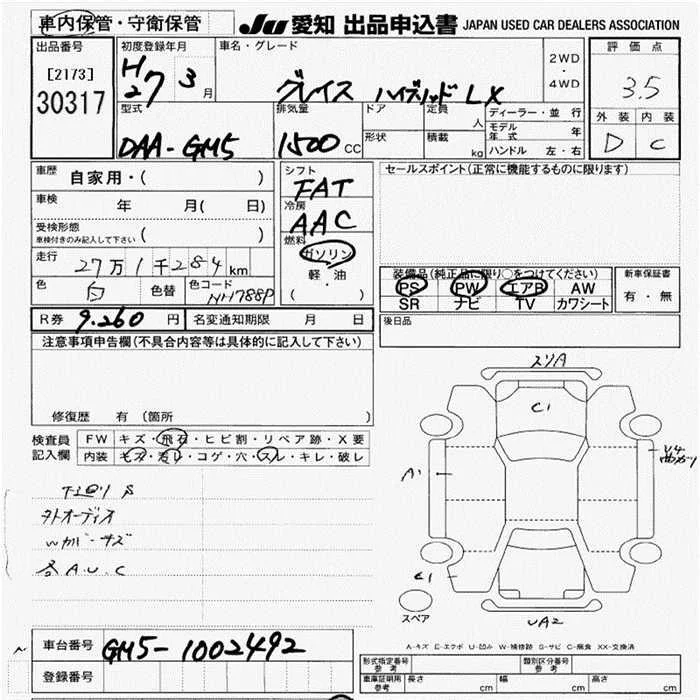 車内保管・守衛保管
JU 愛知 出品申込書 JAPAN USED CAR DEALERS ASSOCIATION
出品番号
[2173]
30317
初度登録年月
H27 3月
車名・グレード
グレイス ハイブリッド LX
2WD
・
4WD
評価点
3.5
外装 内装
D C
型式
DAA-GM5
排気量
1500 CC
ドア
形状
定員 人
積載 kg
ディーラー・並行
モデル年式 年
ハンドル 左・右
車歴 自家用・( )
車検 年 月( 日)
受検形態
車検付きのみ記入して下さい ( )
走行 27万1千284km
色 白 色替 色コード NH788P
シフト
FAT
冷房
AAC
燃料
ガソリン
軽・油
( ・ )
セールスポイント(正常に機能するものに限ります)
装備品(純正品に限り○をつけてください)
PS PW エアB AW
SR ナビ TV カワシート
新車保証書
有・無
R券 9.260 円 名変通知期限 月 日
後日品
注意事項申告欄(不具合内容等は具体的に記入して下さい)
修復歴 有 (箇所 )
検査員
記入欄
FW キズ・飛石・ヒビ割・リペア跡・X要
内装 キズ・汚れ・コゲ・穴・スレ・キレ・破レ
下廻り S
外オーディオ
Wカバーキズ
各A.U.C
スリA
C1
A1
U4
C1
UA2
スペア
A-キズ E-エクボ U-凹み W-補修跡 S-サビ C-腐食 XX-交換済
車台番号 GM5-1002492
登録番号
形式指定番号 参考
類別区分番号 参考
車庫証明用 参考 長さ cm 幅 cm 高さ cm